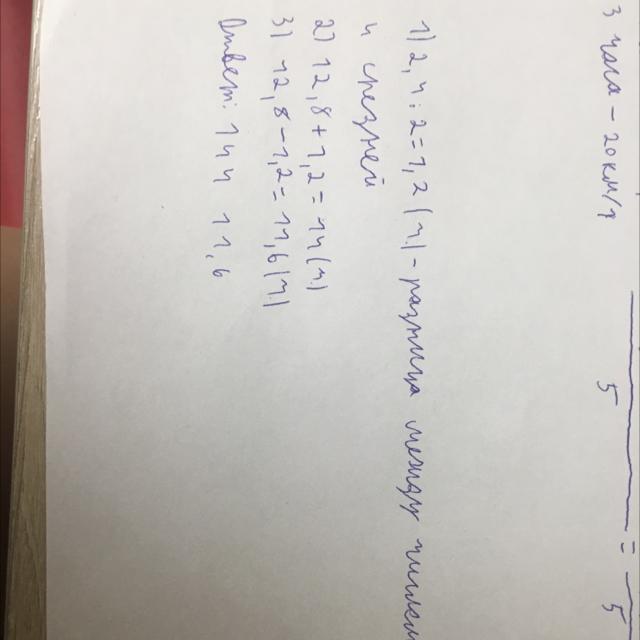 3 часа - 20 км/ч
5 = 5
1) 2,4 : 2 = 1,2 (ч) - разница между числом
и средней
2) 12,8 + 1,2 = 14 (ч)
3) 12,8 - 1,2 = 11,6 (ч)
Ответ: 14 и 11,6